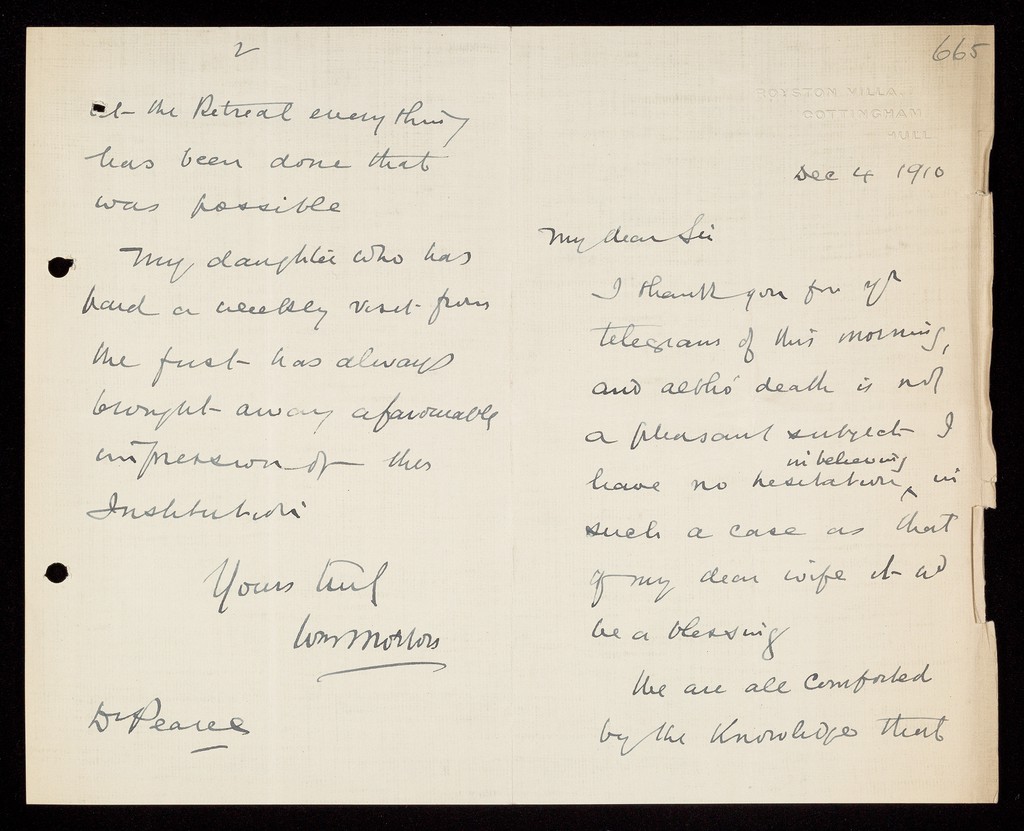 665
ROYSTON VILLA.
COTTINGHAM
HULL
Dec 4 1910
My dear Sir
I thank you for yr
telegram of this morning,
and altho' death is not
a pleasant subject I
have no hesitation in believing, in
such a case as that
of my dear wife it wd
be a blessing
We are all comforted
by the knowledge that
2
at the Retreat everything
has been done that
was possible
My daughter who has
paid a weekly visit from
the first has always
brought away a favourable
impression of the
Institution
Yours truly
Wm Morton
Dr Pearce